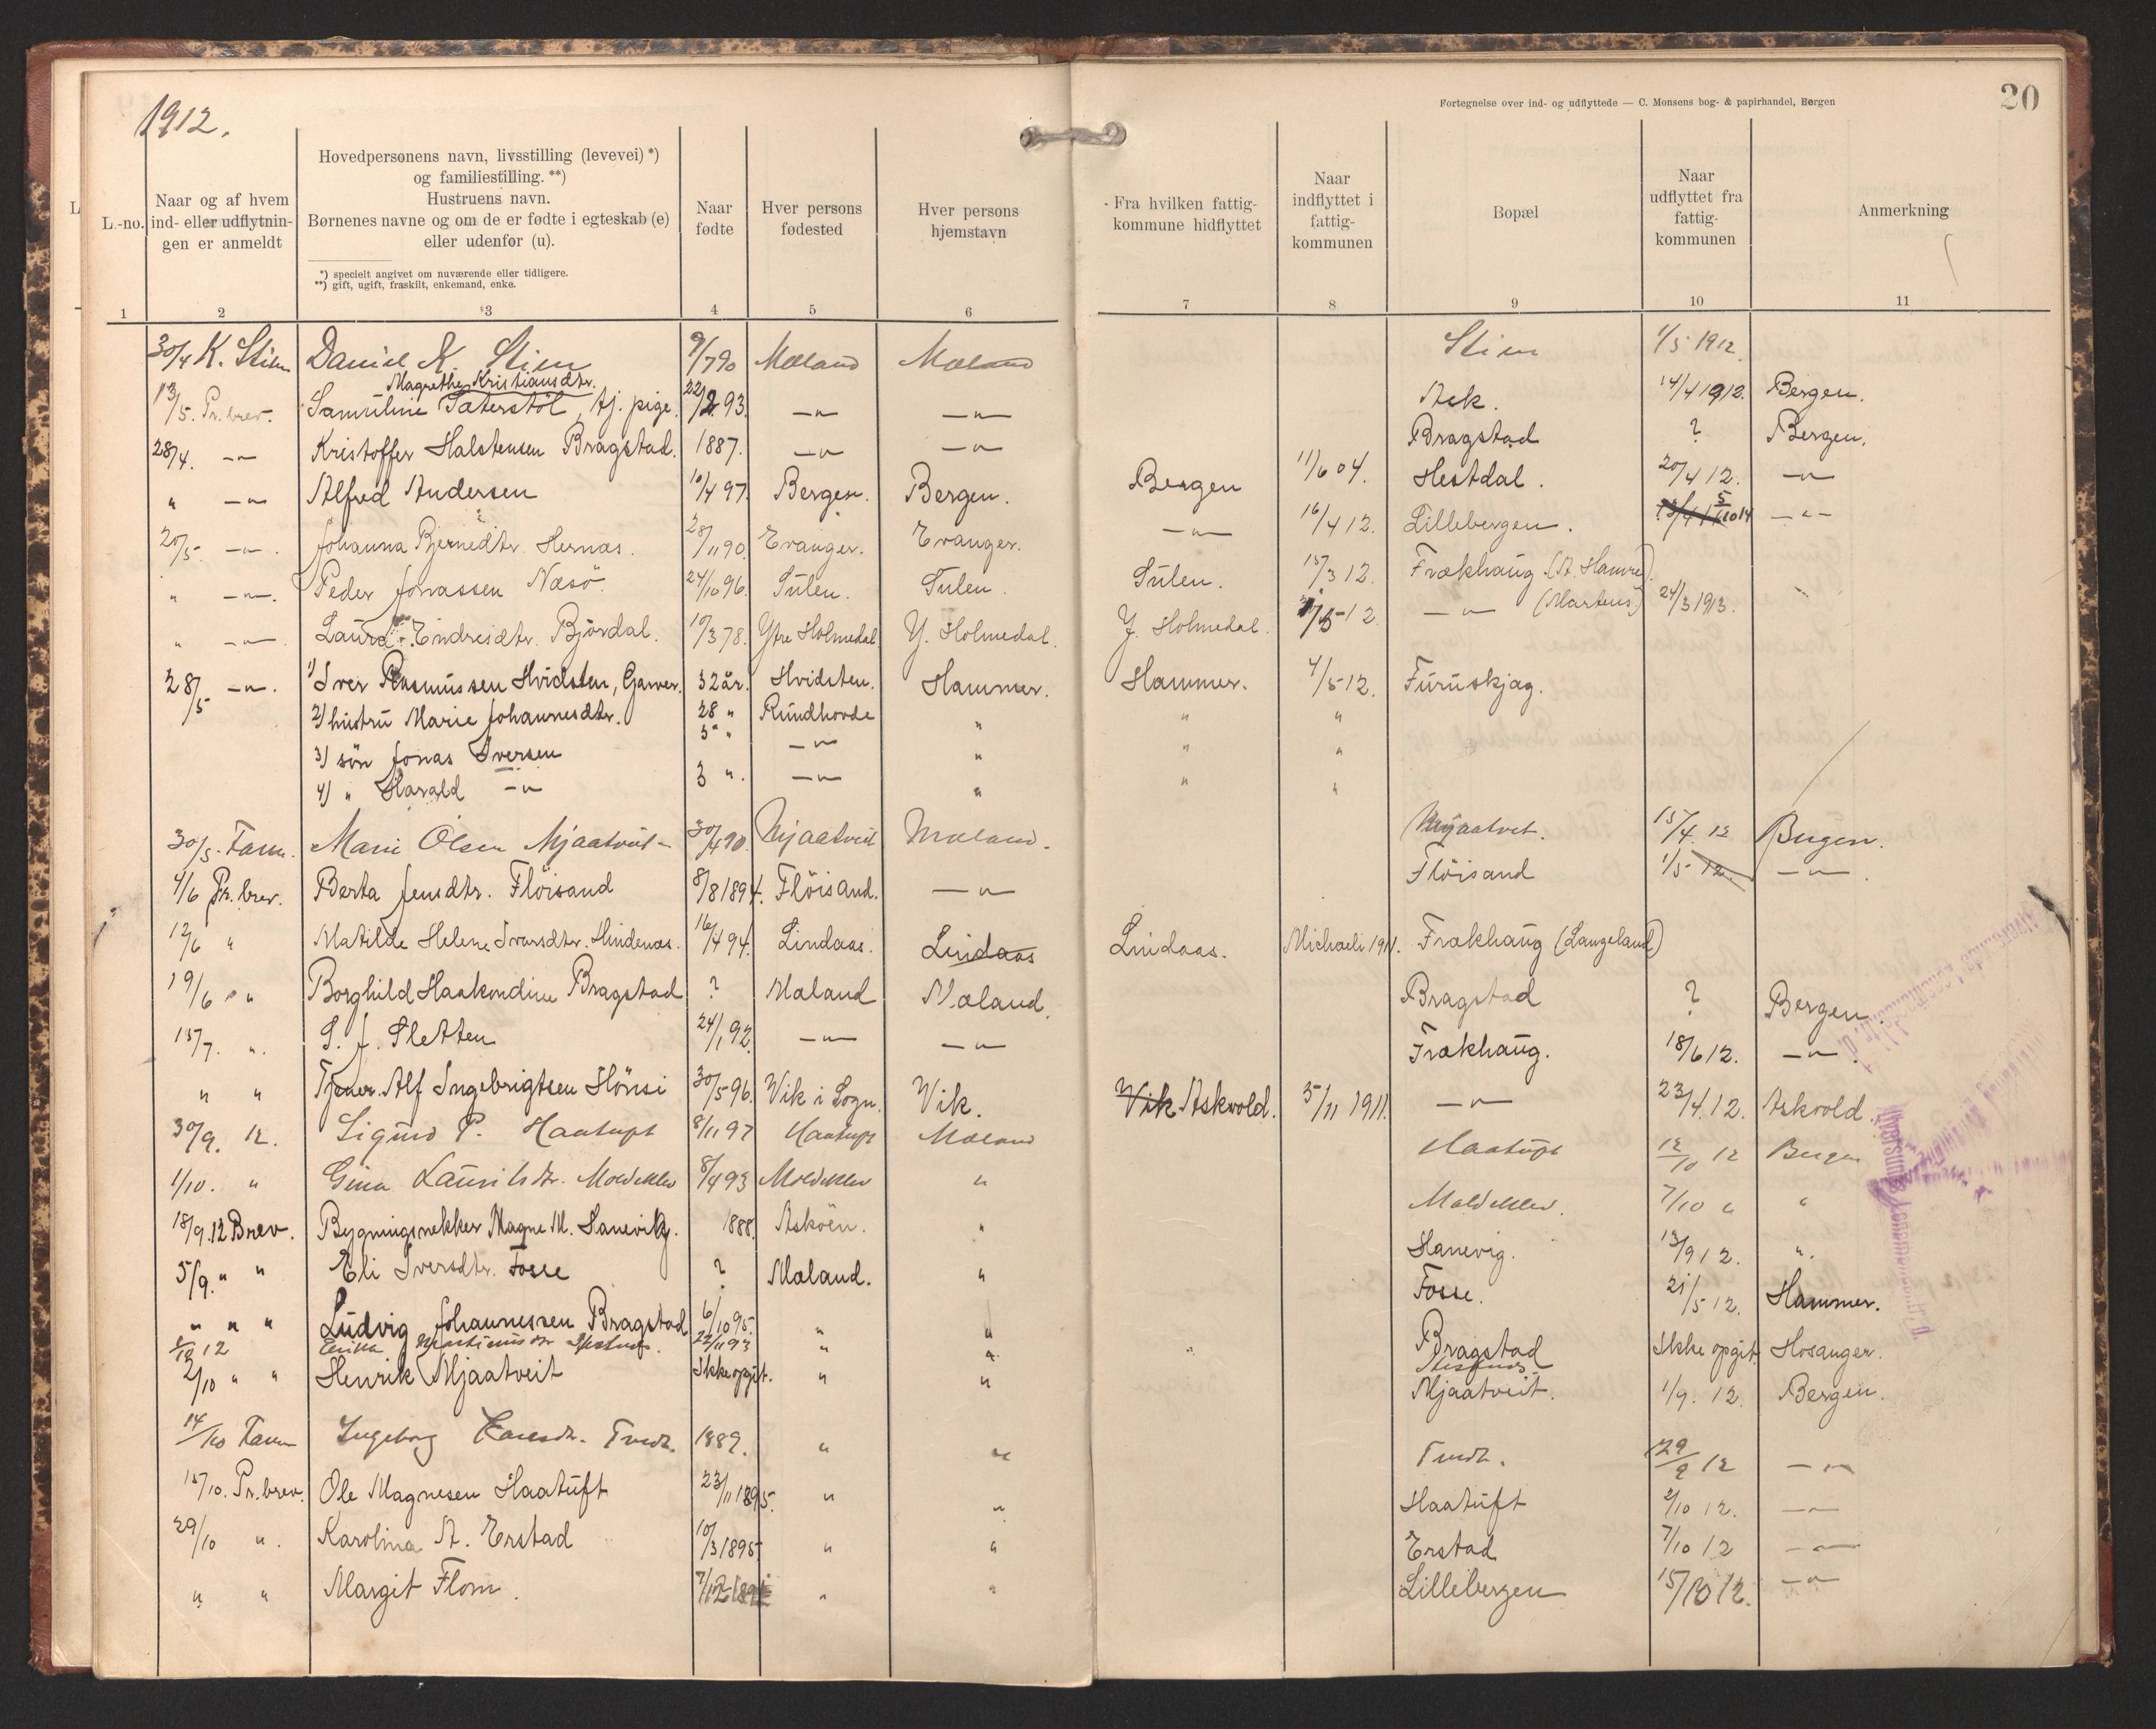 1912.
Fortegnelse over ind- og udflyttede — C. Monsens bog- & papirhandel, Bergen
20
L
L.-no.
Naar og af hvem
ind- eller udflytnin-
gen er anmeldt
Hovedpersonens navn, livsstilling (levevei) *)
og familiestilling. **)
Hustruens navn.
Børnenes navne og om de er fødte i egteskab (e)
eller udenfor (u).
*) specielt angivet om nuværende eller tidligere.
**) gift, ugift, fraskilt, enkemand, enke.
Naar
fødte
Hver persons
fødested
Hver persons
hjemstavn
Fra hvilken fattig-
kommune hidflyttet
Naar
indflyttet i
fattig-
kommunen
Bopæl
Naar
udflyttet fra
fattig-
kommunen
Anmerkning
1 2 3 4 5 6 7 8 9 10 11
30/4 K. Stim Daniel K. Stim 9/7 90 Mæland Mæland Stim 1/5 1912.
Magrethe Kristiansdtr.
13/5. Pr. brev. Samuline Sæterstöl, tj. pige. 22/2 93. —"— —"— Aek. 14/4 1912. Bergen.
28/4. —"— Kristoffer Halstensen Bragstad. 1887. —"— —"— Bragstad ? Bergen.
" —"— Alfred Andersen 10/4 97. Bergen. Bergen. Bergen 11/6 04. Hestdal. 20/4 12. —"—
20/5 —"—. Johanna Bjernedtr. Hernæs. 28/11 90. Evanger. Evanger. —"— 16/4 12. Lillebergen. —"—
" —"—. Peder Jonassen Næsö 24/10 96. Sulen. Sulen. Sulen. 15/3 12. Frækhaug (A. Hamre).
" —"—. Laura Endresdtr. Björdal. 10/3 78. Ytre Holmedal Y. Holmedal. Y. Holmedal. 12. —"— (Martens) 24/3 1913.
28/5 —"—. 1) Iver Rasmussen Hvidsten, Garver. 32 år. Hvidsten. Hammer. Hammer. 4/5 12. Furuskjæg.
2) hustru Marie Johannesdtr. 28 " Rundhovde " " "
3) sön Jonas Iversen 5 " —"— " " "
4) " Harald —"— 3 ". —"— " " "
30/5. Fam. Marie Olsen Mjaatveit 30/4 90. Mjaatveit Mæland. Mjaatvet. 15/4. 12 Bergen.
4/6 Pr. brev. Berta Jensdtr. Flöisand 8/8 1894. Flöisand. —"— Flöisand 1/5 12. —"—.
12/6 " Matilde Helene Ivarsdtr. Hindenæs. 16/4 94. Lindaas. Lindaas Lindaas. Michaeli 1911. Frækhaug (Langeland)
19/6 " Borghild Haakondine Bragstad ? Mæland Mæland. Bragstad ? Bergen.
15/7. ". S. J. Sletten 24/1 92. —"— —"— Frækhaug. 18/6 12. —"—.
" " Tjener. Alf Ingebrigtsen Hönsi 30/5 96. Vik i Sogn. Vik. Vik Askvold. 5/11 1911. —"— 23/4. 12. Askvold.
30/9. 12. Sigurd P. Haatuft 8/11 97 Haatuft Mæland Haatuft 12/10 12 Bergen
1/10. " Gina Lauritsdtr. Moldeklev 8/4 93 Moldeklev " Moldeklev. 7/10 " "
18/9. 12 Brev. Bygningsnekker Magne M. Hanevik. 1888. Askøen. " Hanevig. 13/9 12. ".
5/9. " " Eli Iversdtr. Fosse ? Mæland. " Fosse. 21/5 12. Hammer.
" " " Ludvig Johannessen Bragstad 6/10 95. " " Bragstad Ikke opgit. Hosanger.
12 22/11 93 " "
2/10 " " Henrik Mjaatveit Ikke opgit. " " Mjaatveit. 1/9. 12. Bergen.
14/10 Fam Ingeborg Tvedt. 1889. " " Tvedt. 29/9 12 —"—
15/10. Pr. brev. Ole Magnesen Haatuft 23/11 1895. " " Haatuft 2/10 12. —"—
29/10 ". Karolina A. Erstad 10/3 1895 " " Erstad 7/10 12 —"—
" " Margit Flom. " " Lillebergen 15/10 12. —"—